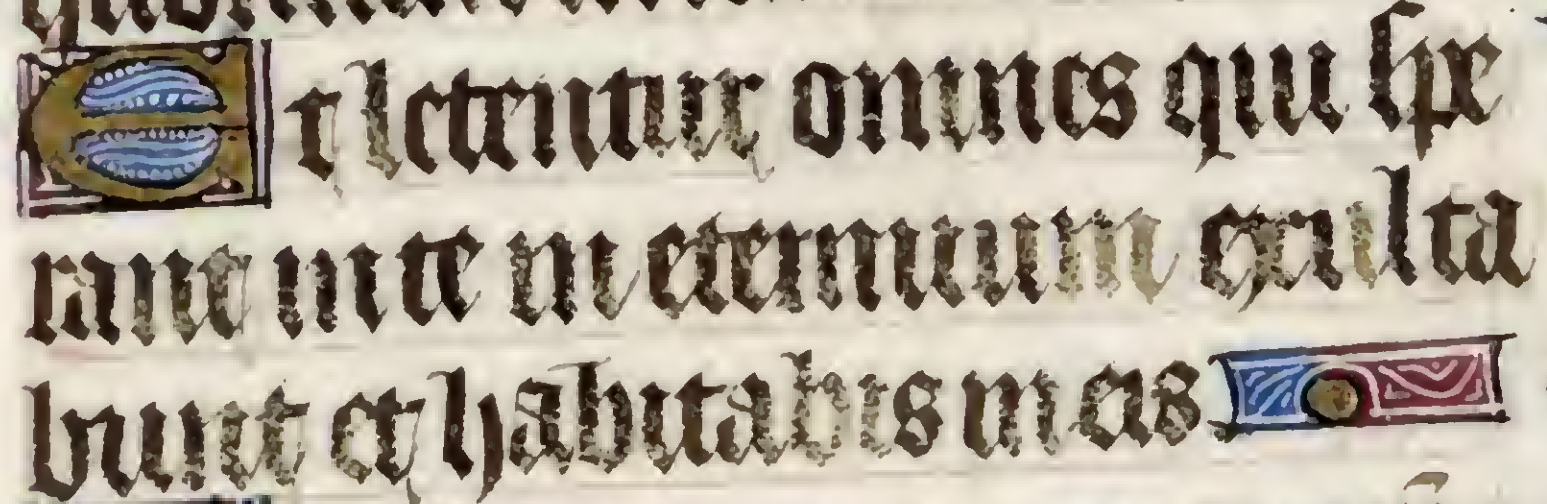 Et letentur omnes qui spe
rant in te in eternum exulta
bunt et habitabis in eis